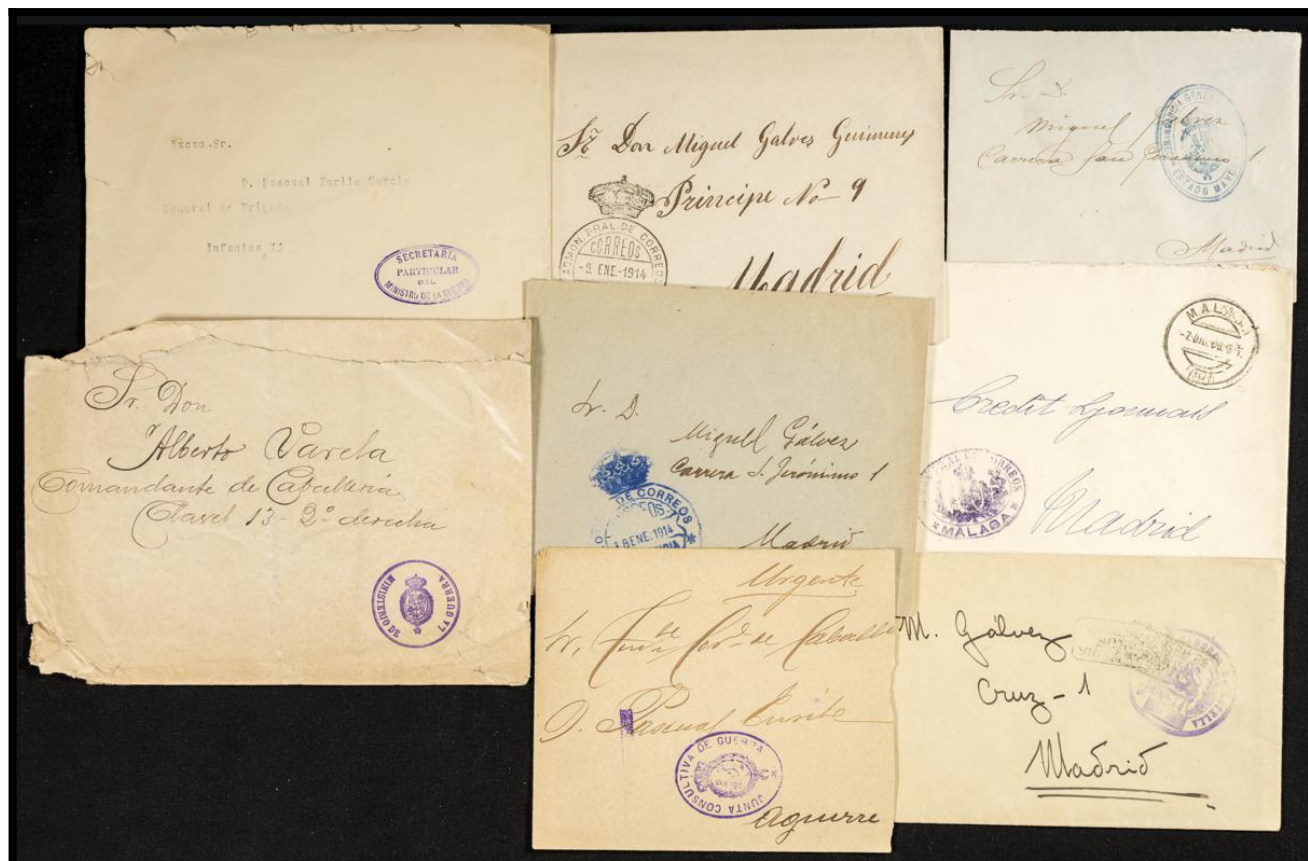 Excmo. Sr.
D. Pascual Enrile García
General de Brigada
Infantas, 12
SECRETARÍA
PARTICULAR
DEL
MINISTRO DE LA GUERRA
Sr. Don Miguel Galves
Principe No 9
Madrid
ADMON PRAL. DE CORREO
CORREOS
-9 ENE.-1914
Sr. D.
Miguel Galvez
Carrera San Geronimo 1.
Madrid
COMANDANCIA GENERAL
ESTADO MAYOR
Sr. Don
Alberto Varela
Comandante de Caballería
Clavel 13 - 2º derecha
MINISTERIO DE LA GUERRA
Sr. D.
Miguel Gálvez
Carrera S. Jerónimo 1
Madrid
DE CORREOS
ENE. 1914
Credit Lyonnais
Madrid
DE CORREOS
* MALAGA *
Urgente
Sr. de
D. Pascual Enrile
JUNTA CONSULTIVA DE GUERRA
Aguirre
M. Gálvez
Cruz - 1
Madrid